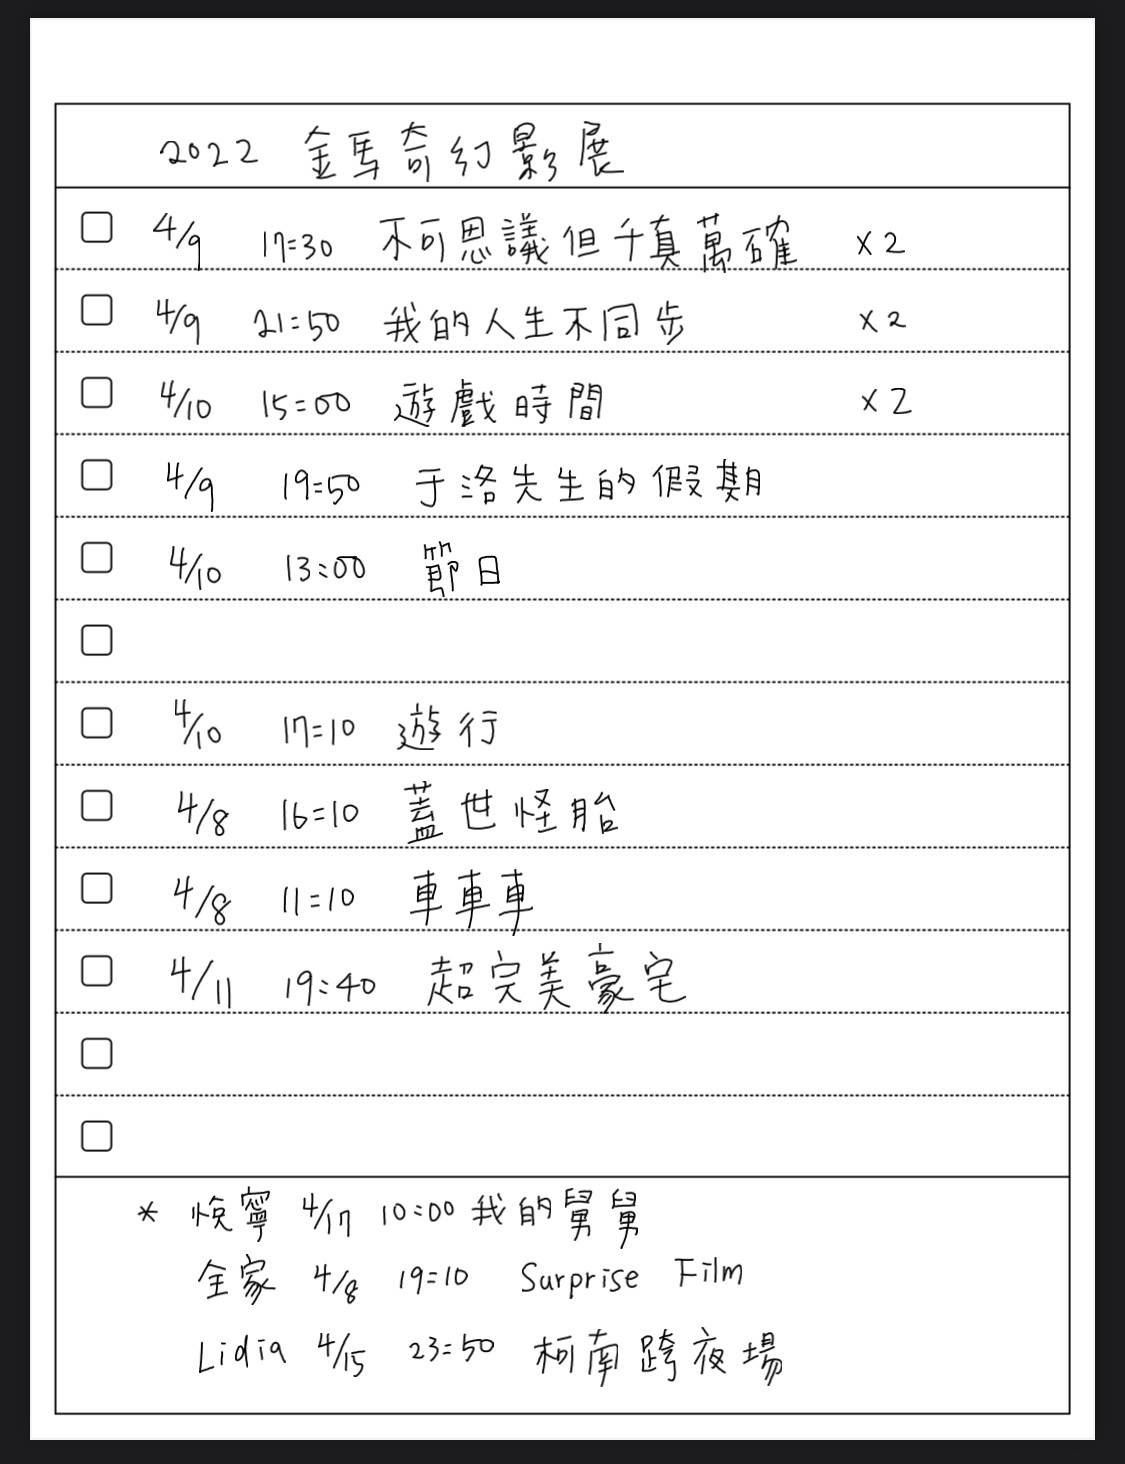 2022 金馬奇幻影展
4/9 17:30 不可思議但千真萬確 x2
4/9 21:50 我的人生不同步 x2
4/10 15:00 遊戲時間 x2
4/9 19:50 于洛先生的假期
4/10 13:00 節日
4/10 17:10 遊行
4/8 16:10 蓋世怪胎
4/8 11:10 車車車
4/11 19:40 超完美豪宅
* 寧 4/17 10:00 我的舅舅
全家 4/8 19:10 Surprise Film
Lidia 4/15 23:50 柯南跨夜場